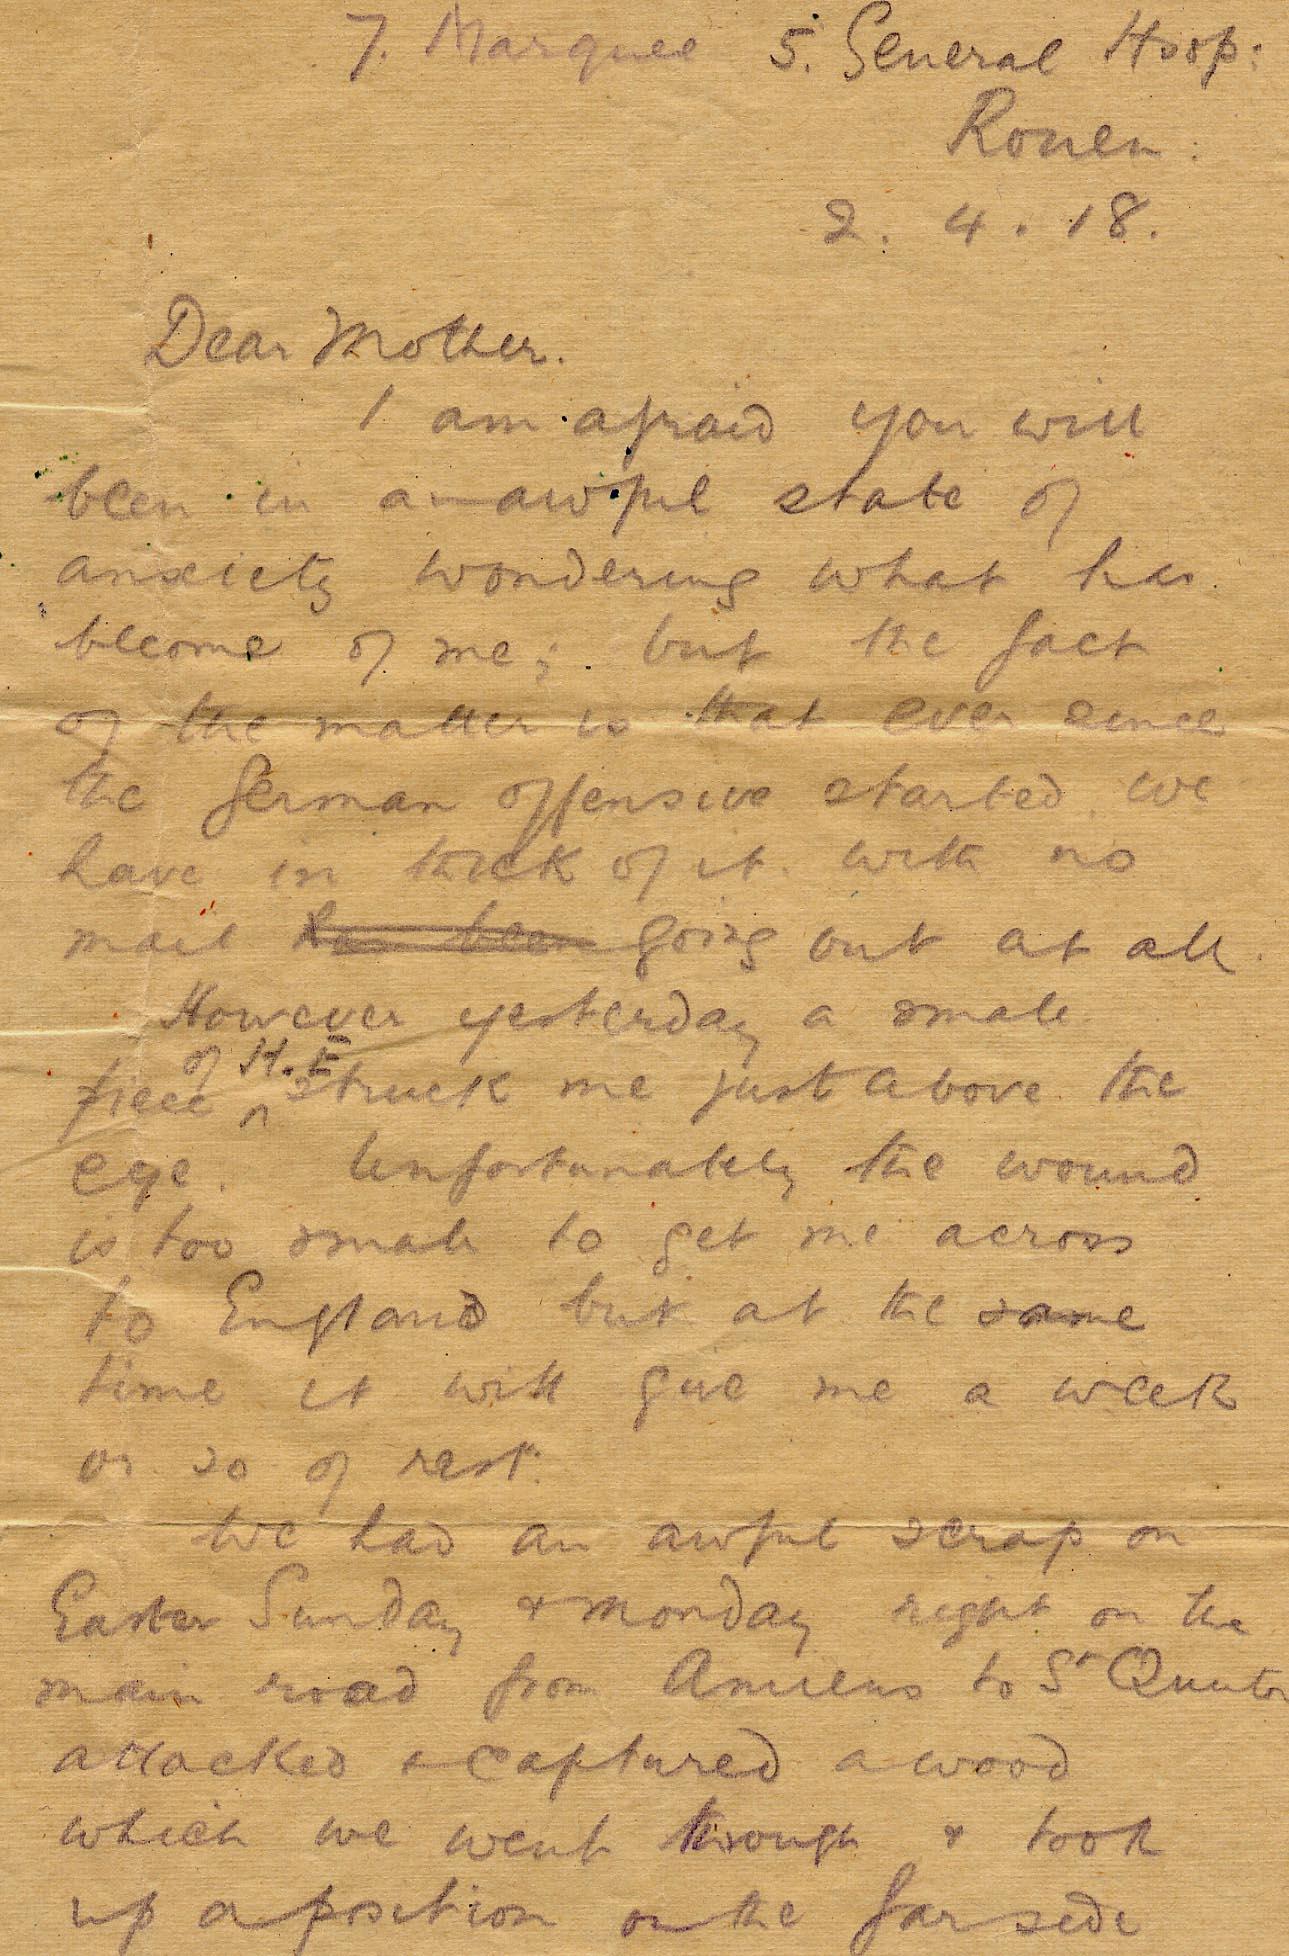 7. Marquee 5. General Hosp:
Rouen.
2. 4. 18.
Dear Mother.
I am afraid you will
been in an awful state of
anxiety wondering what has
become of me; but the fact
of the matter is that ever since
the German offensive started we
have in thick of it with no
mail has been going out at all.
However yesterday a small
of H.E
piece ^ struck me just above the
eye. Unfortunately the wound
is too small to get me across
to England but at the same
time it will give me a week
or so of rest.
We had an awful scrap on
Easter Sunday & Monday right on the
main road from Amiens to St Quentin
attacked & captured a wood
which we went through & took
up a position on the far side